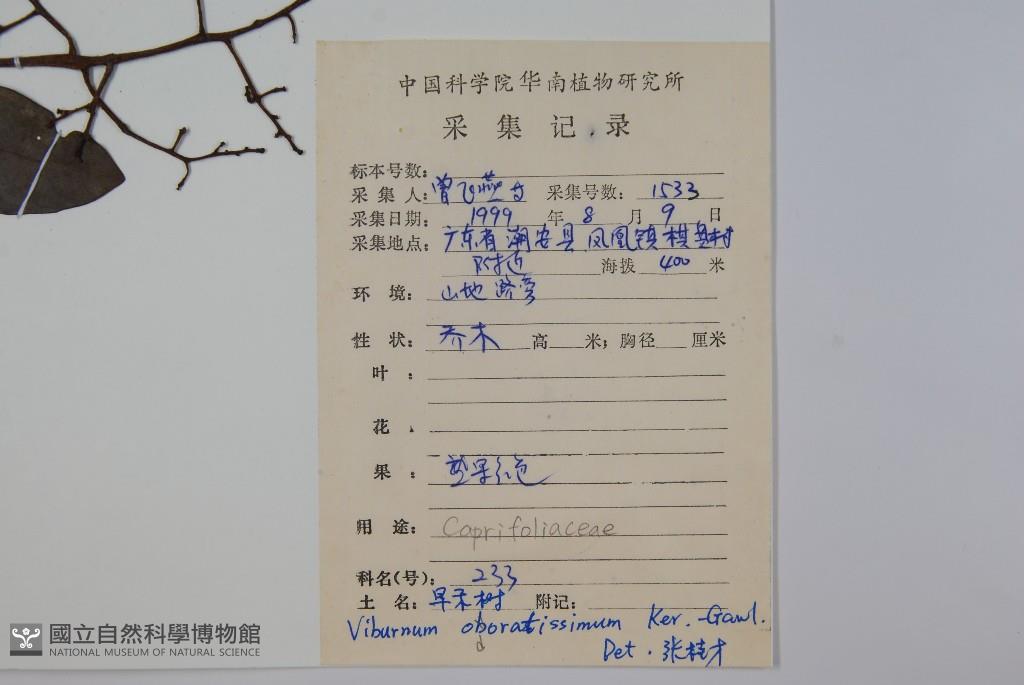 中国科学院华南植物研究所
采集记录
标本号数:
采集人: 曾飞燕 采集号数: 1533
采集日期: 1999 年 8 月 9 日
采集地点: 广东省潮安县凤凰镇棋盘村
附近 海拨 400 米
环境: 山地路旁
性状: 乔木 高 米; 胸径 厘米
叶:
花.
果: 坚果红色
用途: Caprifoliaceae
科名(号): 233
土名: 早禾树 附记:
Viburnum oboratissimum Ker.-Gawl.
d
Det. 张桂才
國立自然科學博物館
NATIONAL MUSEUM OF NATURAL SCIENCE